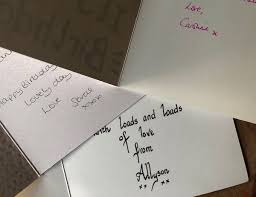 Love,
Caroline x
Happy Birthday
Lovely day
Love
xxxx
with loads and loads
of love
from
Allyson
xx xx